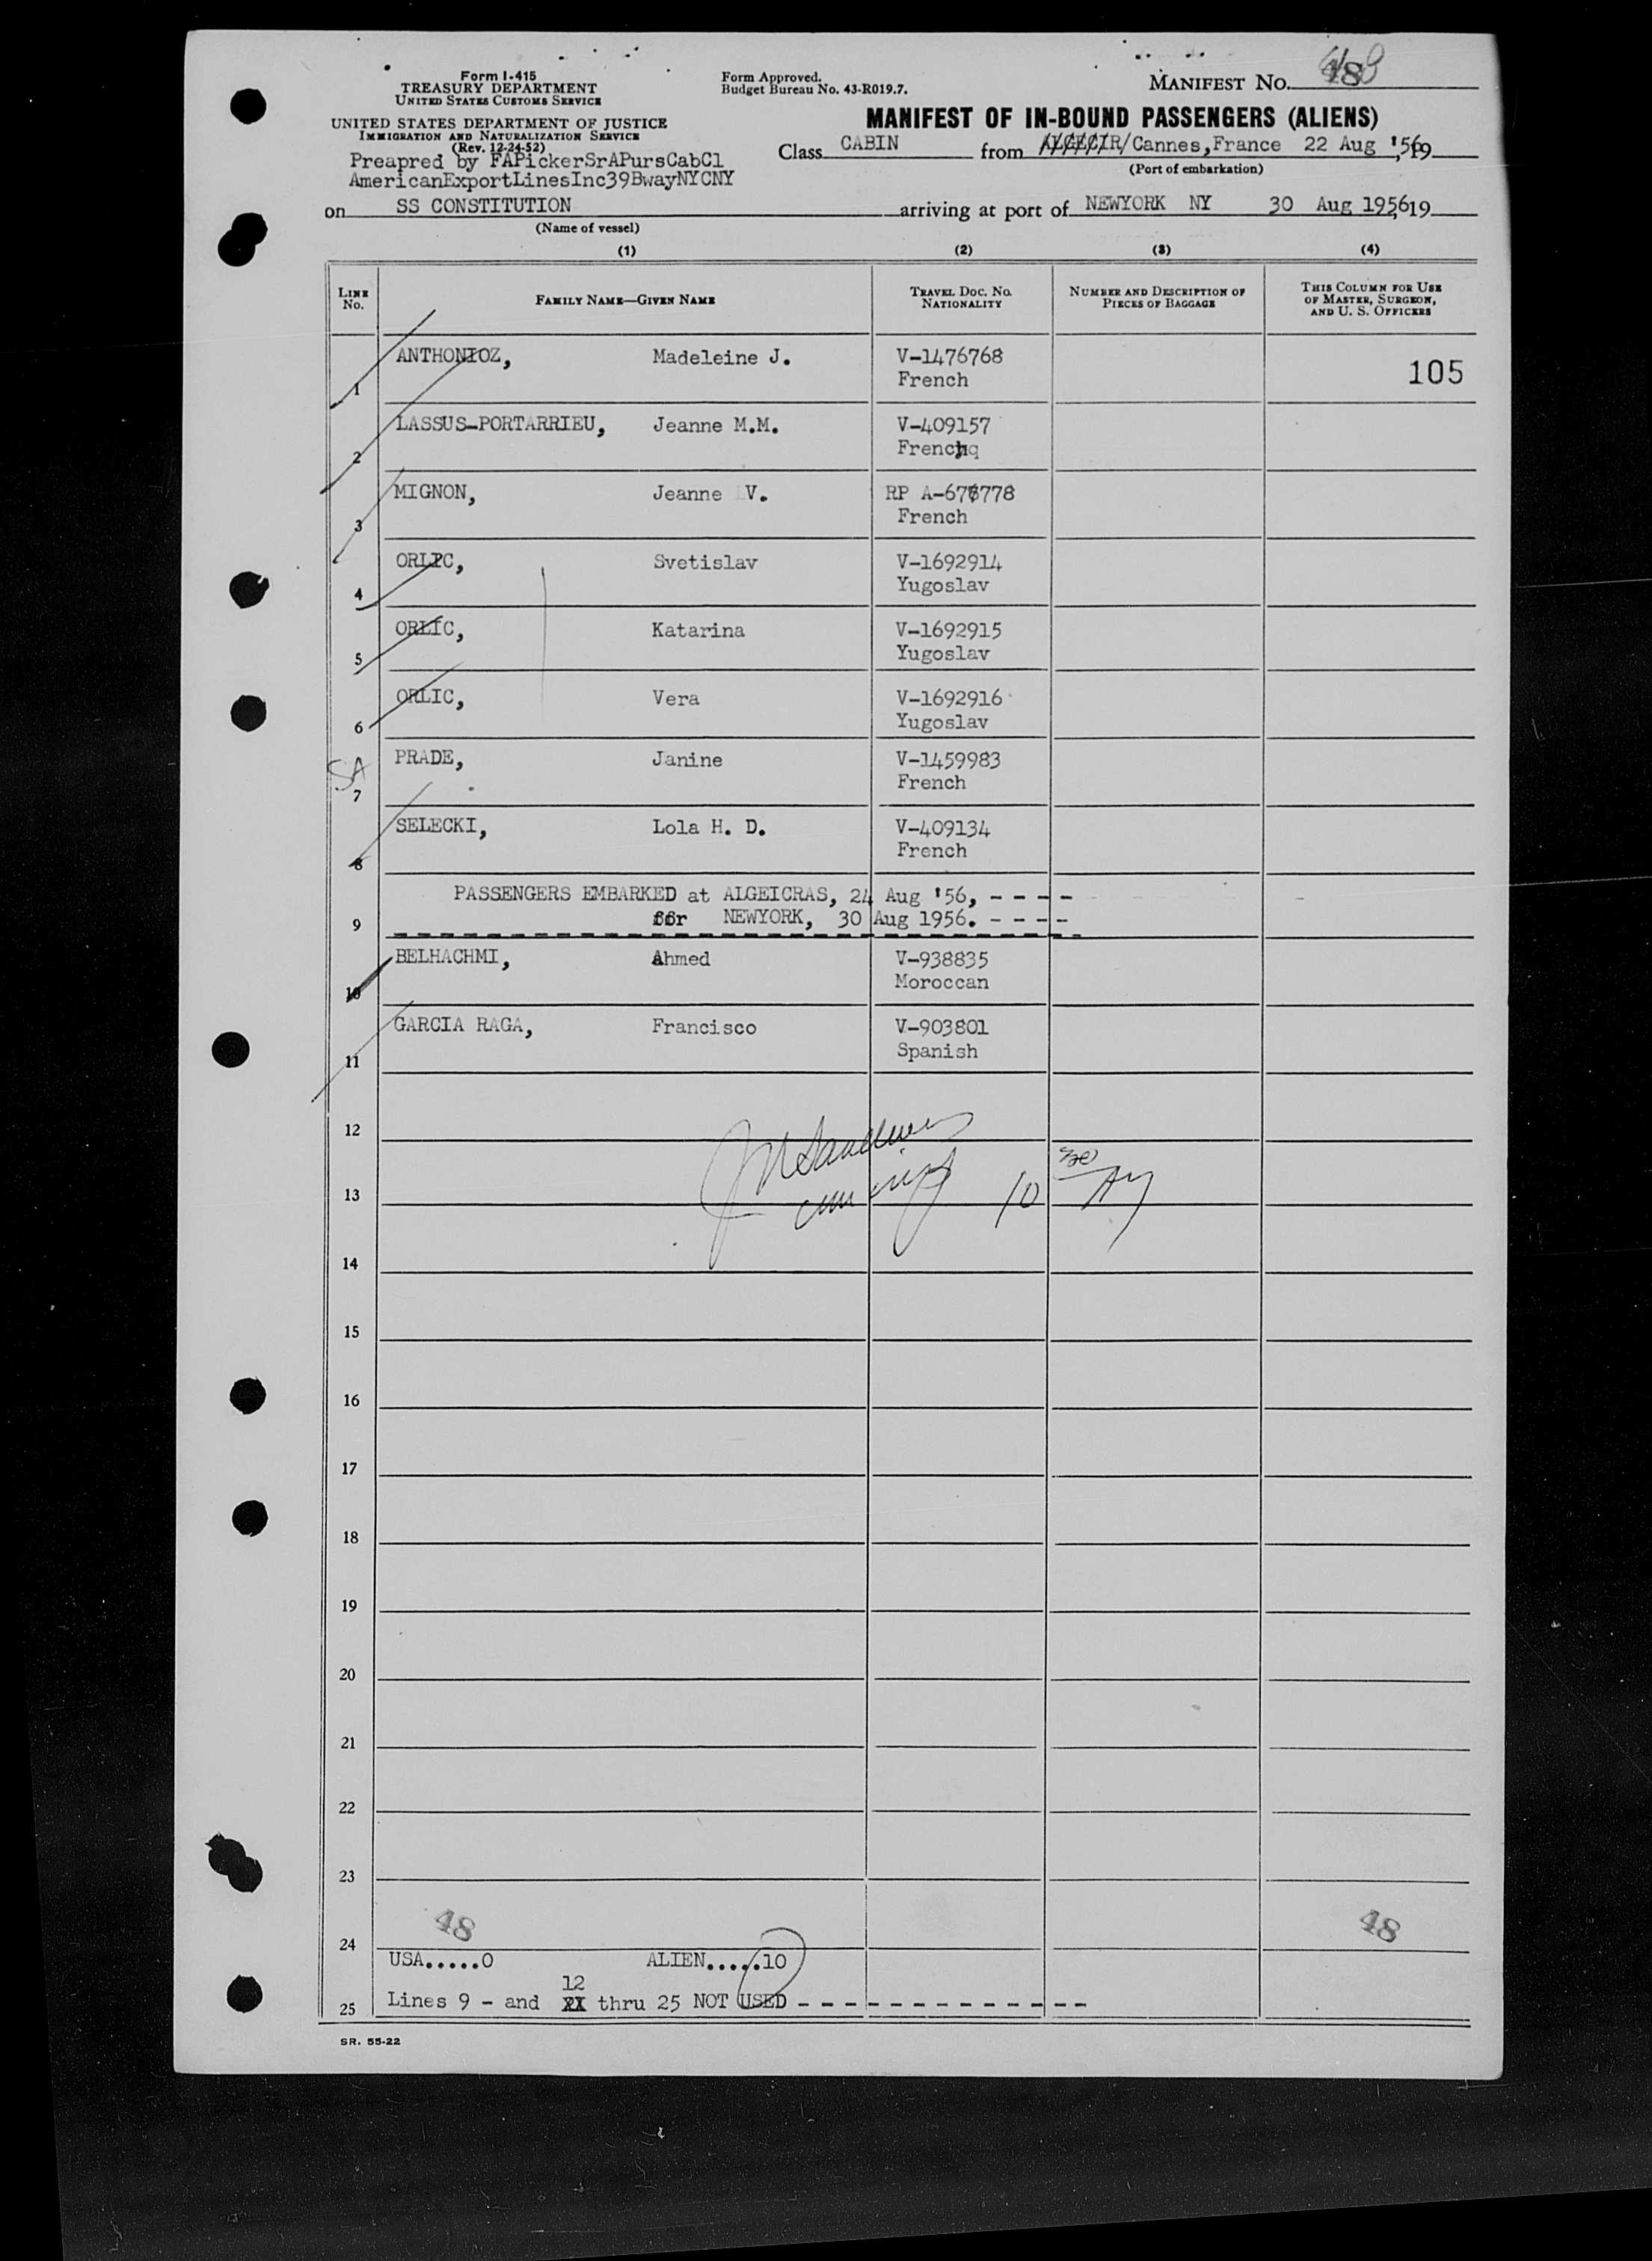 Form I-415
TREASURY DEPARTMENT
UNITED STATES CUSTOMS SERVICE
UNITED STATES DEPARTMENT OF JUSTICE
IMMIGRATION AND NATURALIZATION SERVICE
(Rev. 12-24-52)
Preapred by FAPickerSrAPursCabCl
AmericanExportLinesInc39BwayNYCNY
Form Approved.
Budget Bureau No. 43-R019.7.
MANIFEST No. 48
MANIFEST OF IN-BOUND PASSENGERS (ALIENS)
Class CABIN from ALGECIR/Cannes,France 22 Aug '56, 19
(Port of embarkation)
on SS CONSTITUTION arriving at port of NEWYORK NY 30 Aug 1956, 19
(Name of vessel)
(1) (2) (3) (4)
LINE No. FAMILY NAME—GIVEN NAME TRAVEL DOC. NO. NATIONALITY NUMBER AND DESCRIPTION OF PIECES OF BAGGAGE THIS COLUMN FOR USE OF MASTER, SURGEON, AND U. S. OFFICERS
1 ANTHONIOZ, Madeleine J. V-1476768 105
French
2 LASSUS-PORTARRIEU, Jeanne M.M. V-409157
French
3 MIGNON, Jeanne V. RP A-678778
French
4 ORLIC, Svetislav V-1692914
Yugoslav
5 ORLIC, Katarina V-1692915
Yugoslav
6 ORLIC, Vera V-1692916
Yugoslav
SA
7 PRADE, Janine V-1459983
French
8 SELECKI, Lola H. D. V-409134
French
PASSENGERS EMBARKED at ALGEICRAS, 24 Aug '56, - - - -
9 for NEWYORK, 30 Aug 1956. - - - -
10 BELHACHMI, Ahmed V-938835
Moroccan
11 GARCIA RAGA, Francisco V-903801
Spanish
12
13 10
14
15
16
17
18
19
20
21
22
23
48 48
24
USA.....0 ALIEN.....10
12
25 Lines 9 - and thru 25 NOT USED - - - - - - - - - - - - -
SR. 55-22